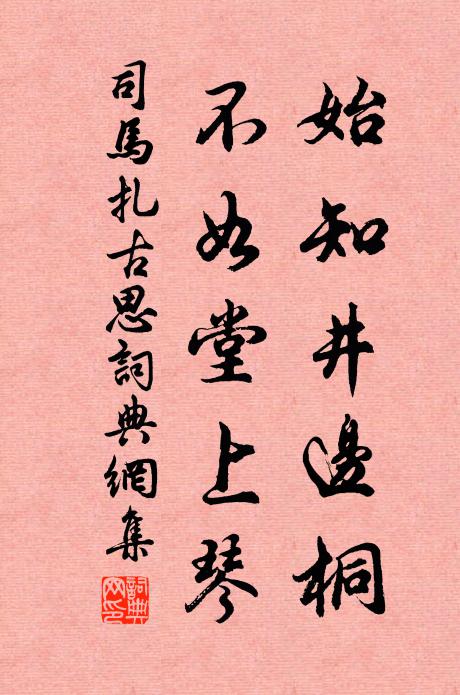 始知井邊桐
不如堂上琴
司馬扎古思詞典網集
詞典網印